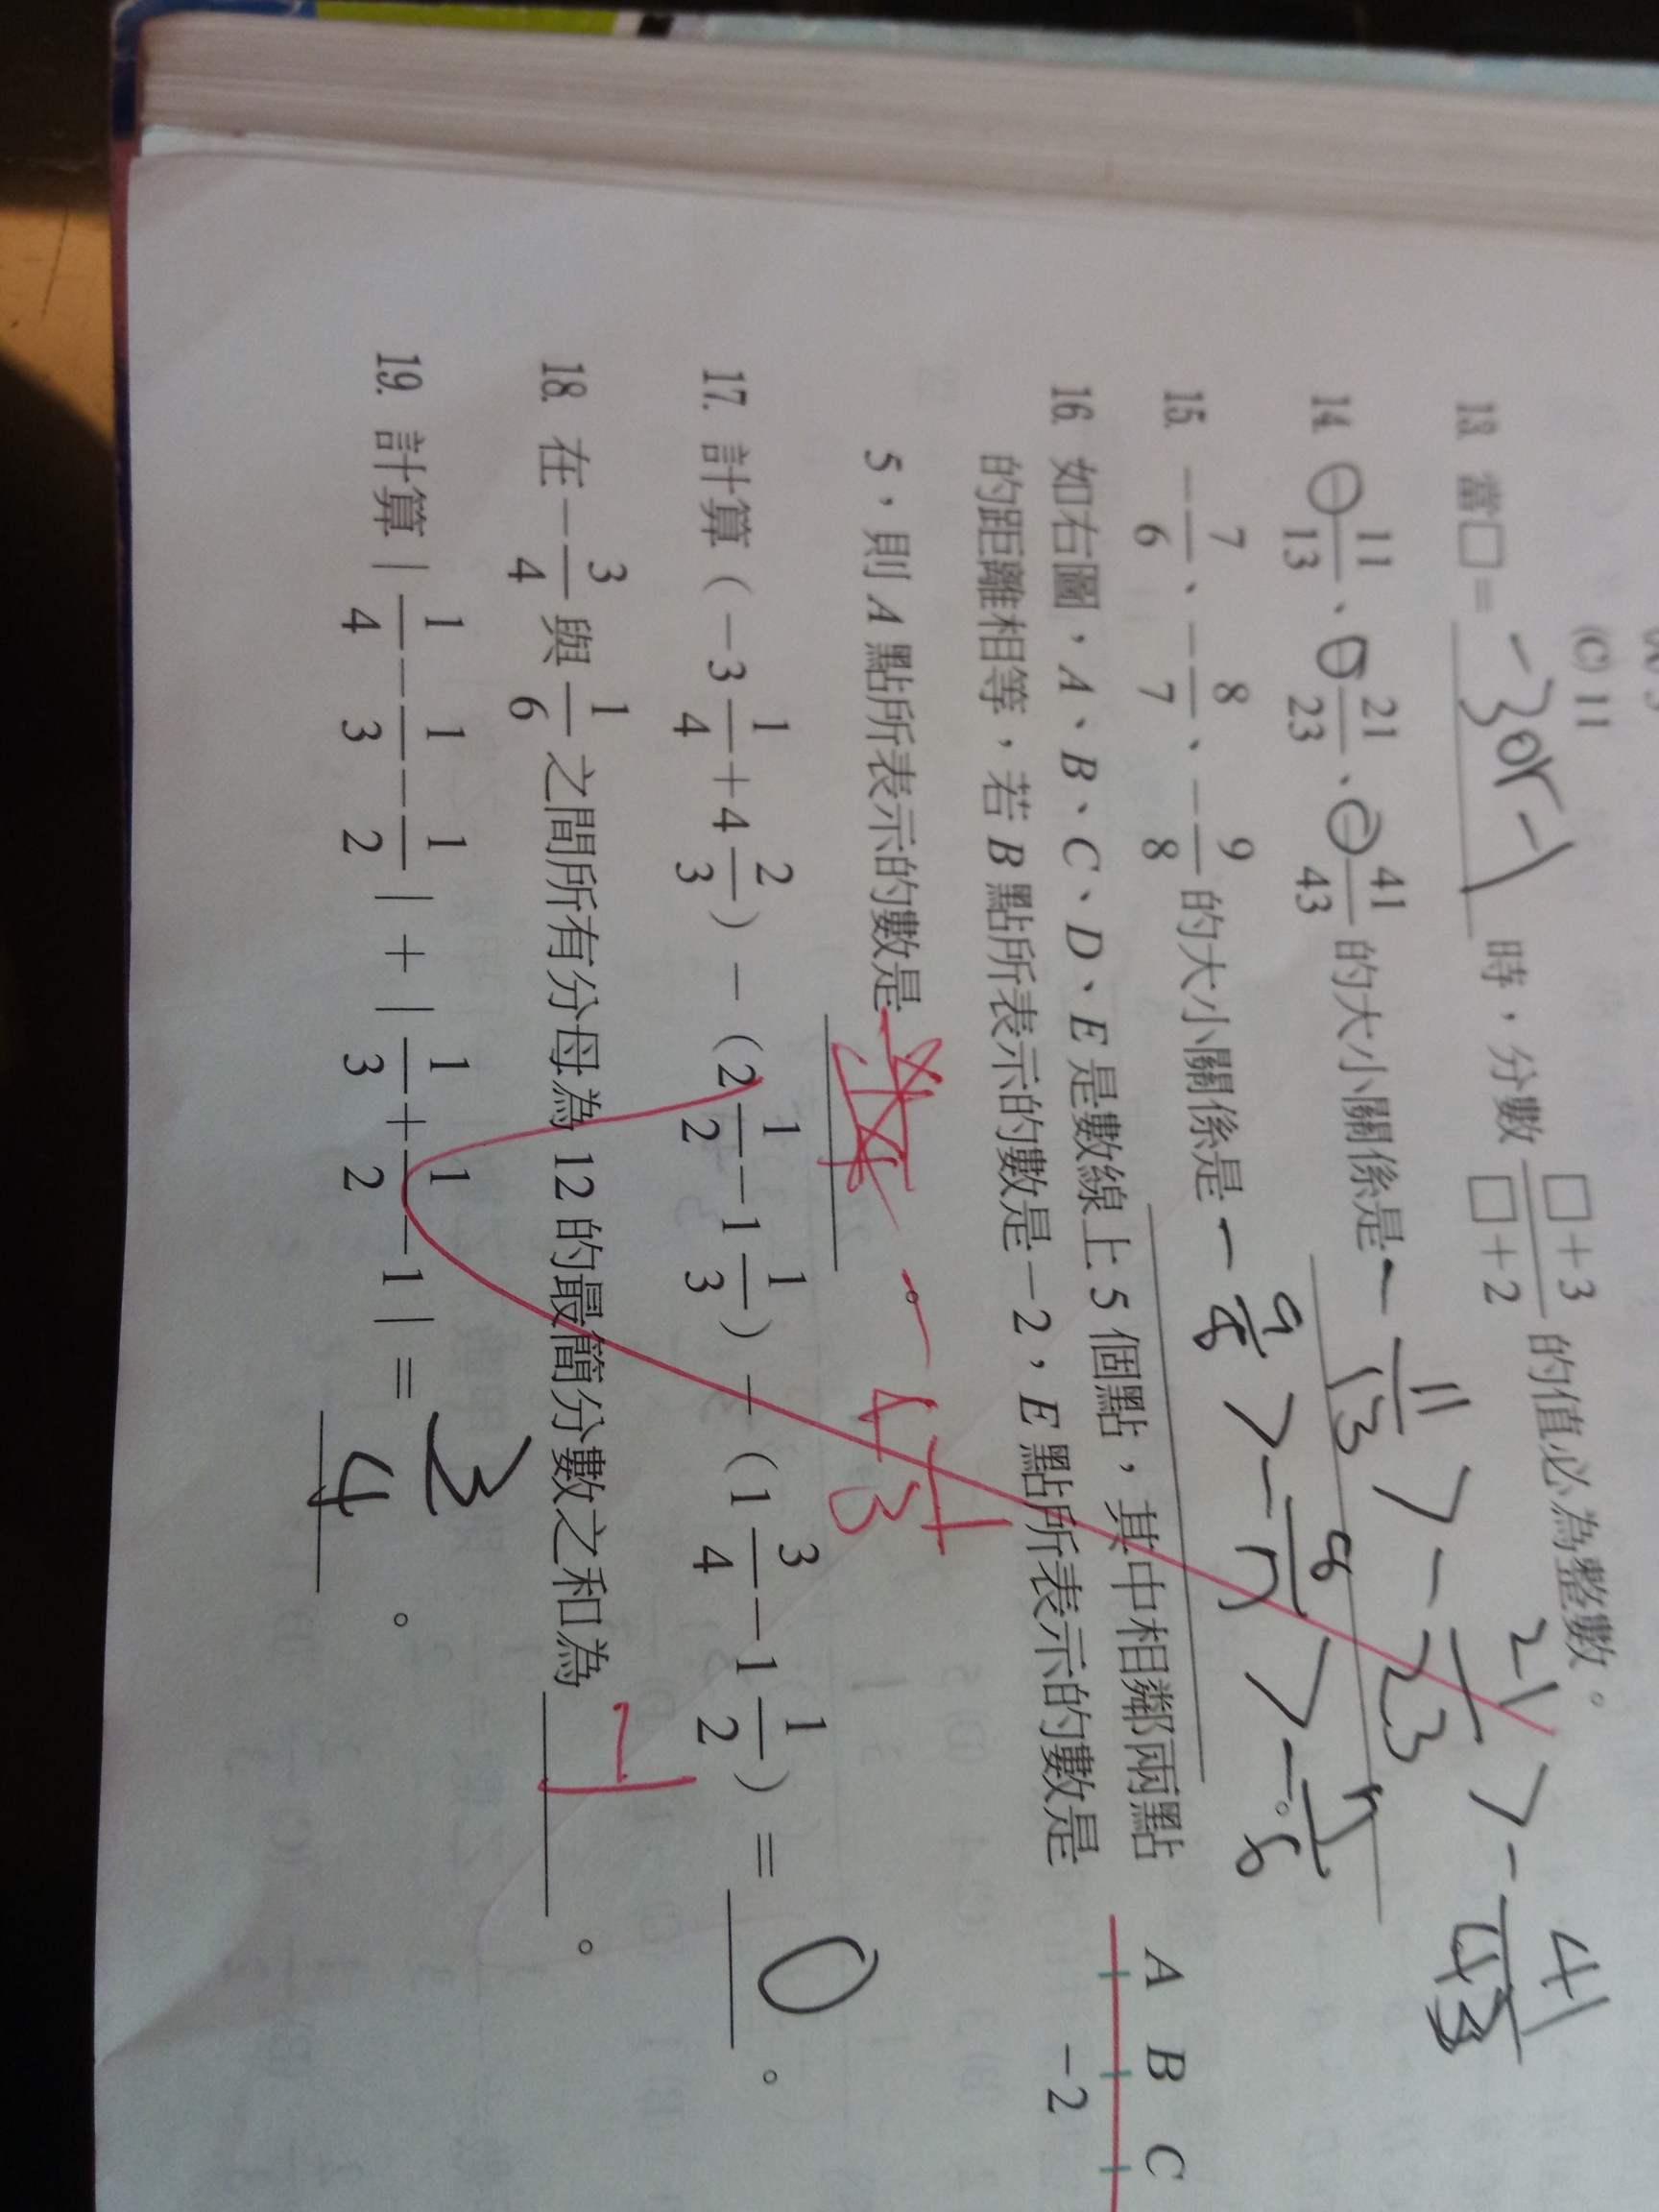 (C) 11
13. 當□= -3or-1 時，分數 □+3/□+2 的值必為整數。
14. -11/13、-21/23、-41/43 的大小關係是 -11/13 > -21/23 > -41/43
15. -7/6、-8/7、-9/8 的大小關係是 -9/8 > -8/7 > -7/6 。
16. 如右圖，A、B、C、D、E 是數線上 5 個點，其中相鄰兩點
的距離相等，若 B 點所表示的數是 -2，E 點所表示的數是
5，則 A 點所表示的數是 。 -4 1/3
A B C
-2
17. 計算 (-3 1/4+4 2/3) - (2 1/2-1 1/3) - (1 3/4-1 1/2) = 0 。
18. 在 -3/4 與 1/6 之間所有分母為 12 的最簡分數之和為 -1 。
19. 計算 |1/4-1/3-1/2| + |1/3+1/2-1| = 3/4 。